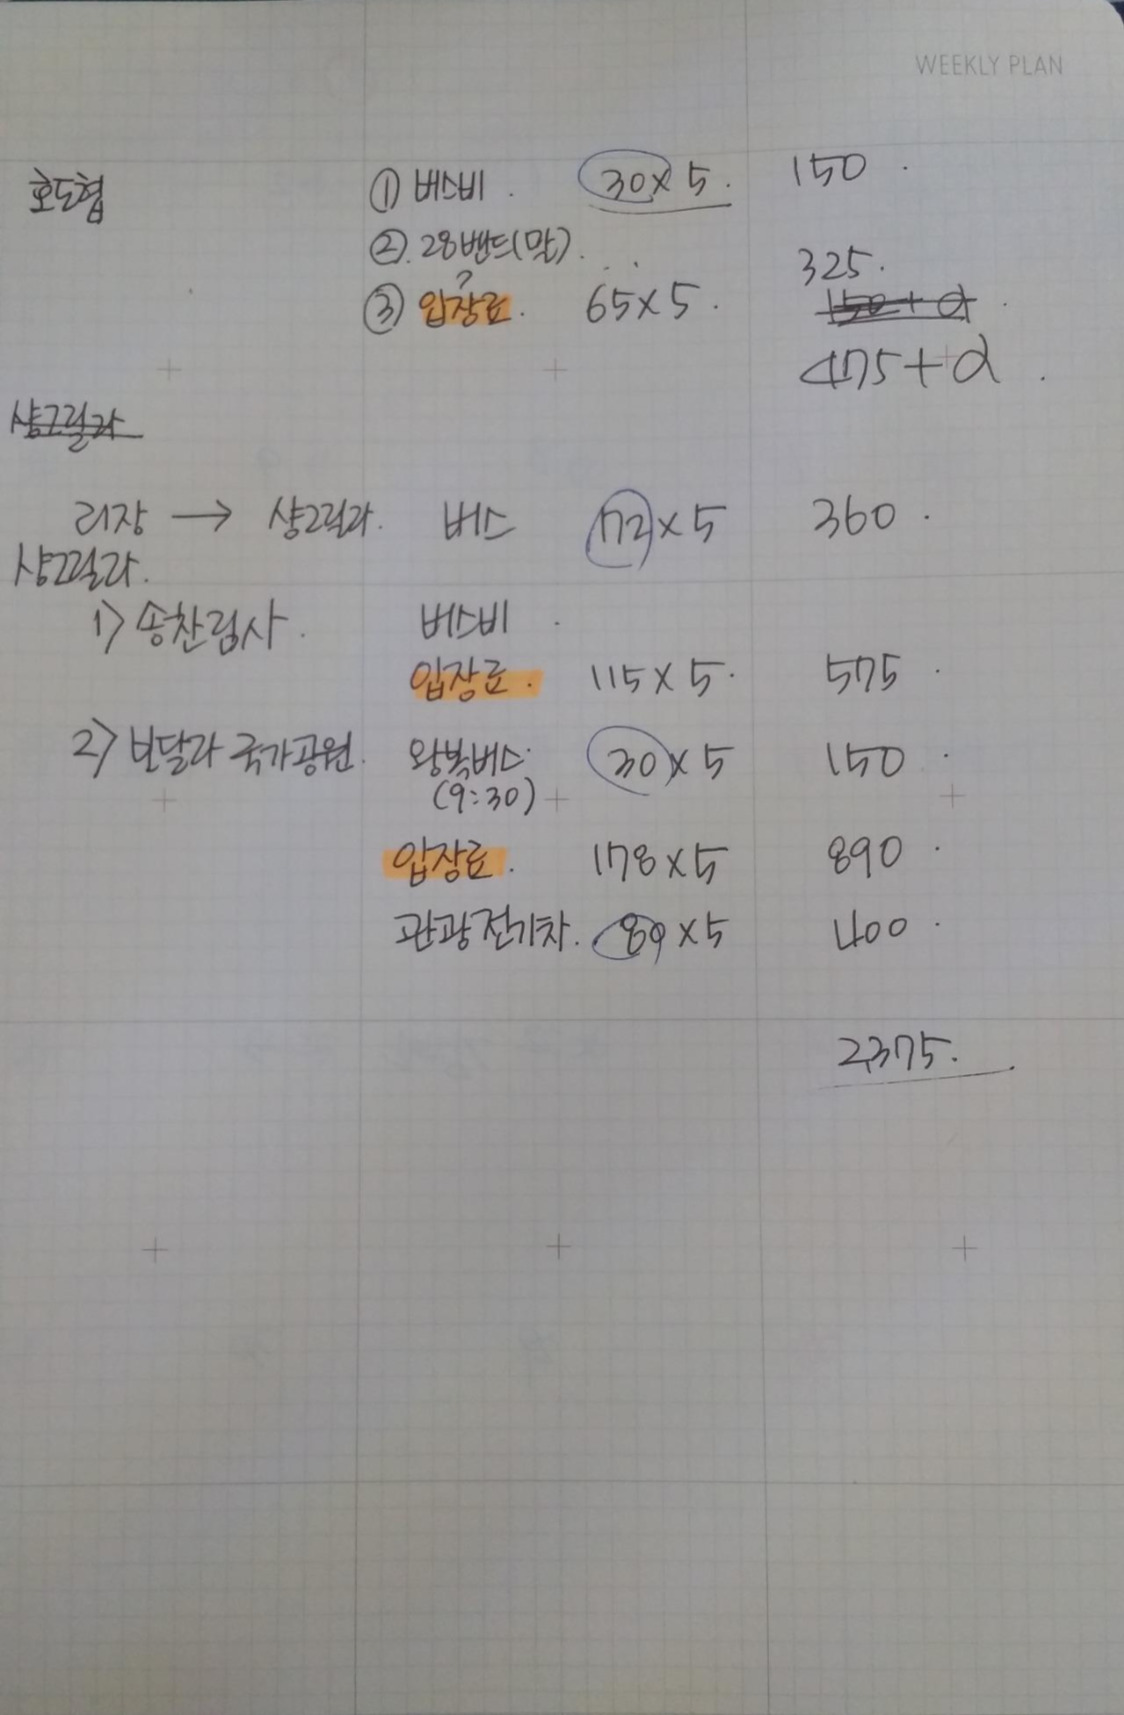 WEEKLY PLAN
호도협 ① 버스비. 30 x 5. 150.
② 28밴드(말).
?
③ 입장료. 65 x 5. 325.
150 + α.
475 + α.
샹그릴라
리장 → 샹그릴라. 버스 72 x 5 360.
샹그릴라.
1) 송찬림사. 버스비.
입장료. 115 x 5. 575.
2) 보달라 국가공원. 왕복버스. 30 x 5 150.
(9:30)
입장료. 178 x 5 890.
관광전기차. 80 x 5 400.
2,375.